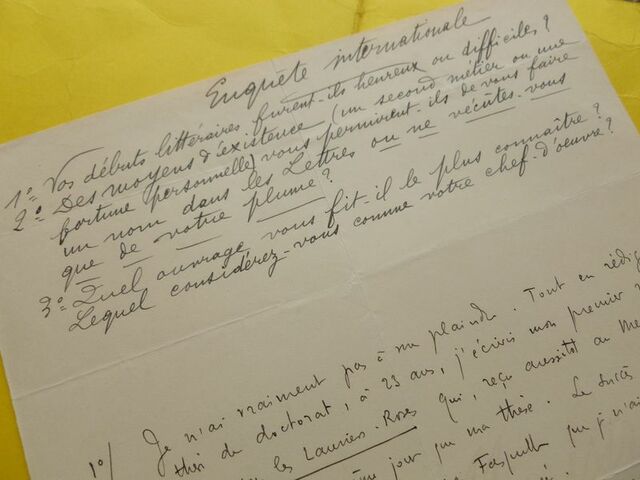 Enquête internationale
1º Vos débuts littéraires furent-ils heureux ou difficiles?
2º Des moyens d'existence (un second métier ou une
fortune personnelle) vous permirent-ils de vous faire
un nom dans les Lettres ou ne vécûtes-vous
que de votre plume?
3º Quel ouvrage vous fit-il le plus connaître?
Lequel considérez-vous comme votre chef-d'oeuvre?
1º/ Je n'ai vraiment pas à me plaindre. Tout en
thèse de doctorat, à 23 ans, j'écrivis mon premier
les Lauriers-Roses qui, reçu aussitôt au
jour que ma thèse. Le succès
Fasquelle que j'n'ai